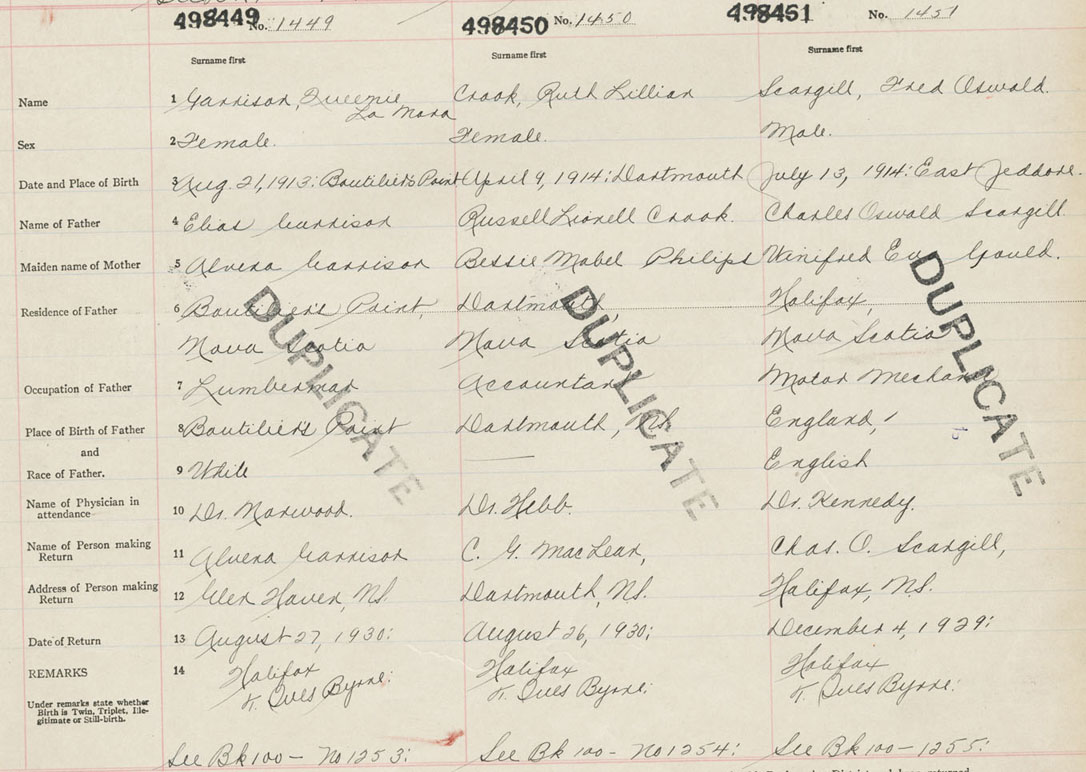 498449 No. 1449 498450 No. 1450 498451 No. 1451
Surname first Surname first Surname first
Name 1 Garrison, Queenie Crook, Ruth Lillian Scargill, Fred Oswald.
La Nora
Sex 2 Female. Female. Male.
Date and Place of Birth 3 Aug. 21, 1913: Boutilier's Point April 9, 1914: Dartmouth July 13, 1914: East Jeddore.
Name of Father 4 Elias Garrison Russell Lionell Crook. Charles Oswald Scargill
Maiden name of Mother 5 Alvena Garrison Bessie Mabel Philips Winifred Eva Gould.
Residence of Father 6 Boutilier's Point, Dartmouth, Halifax,
Nova Scotia Nova Scotia Nova Scotia
Occupation of Father 7 Lumberman Accountant Motor Mechanic
Place of Birth of Father 8 Boutilier's Point Dartmouth, NS. England,
and
Race of Father. 9 White — English
Name of Physician in 10 Dr. Norwood. Dr. Hebb. Dr. Kennedy.
attendance
Name of Person making 11 Alvena Garrison C. G. MacLean, Chas. O. Scargill,
Return
Address of Person making 12 Glen Haven, NS. Dartmouth, NS. Halifax, NS.
Return
Date of Return 13 August 27, 1930: August 26, 1930: December 4, 1929:
REMARKS 14 Halifax Halifax Halifax
Byrne: Byrne: Byrne:
Under remarks state whether
Birth is Twin, Triplet, Ille-
gitimate or Still-birth.
See Bk 100 - No 1253: See Bk 100 - No 1254: See Bk 100 - 1255:
DUPLICATE DUPLICATE DUPLICATE